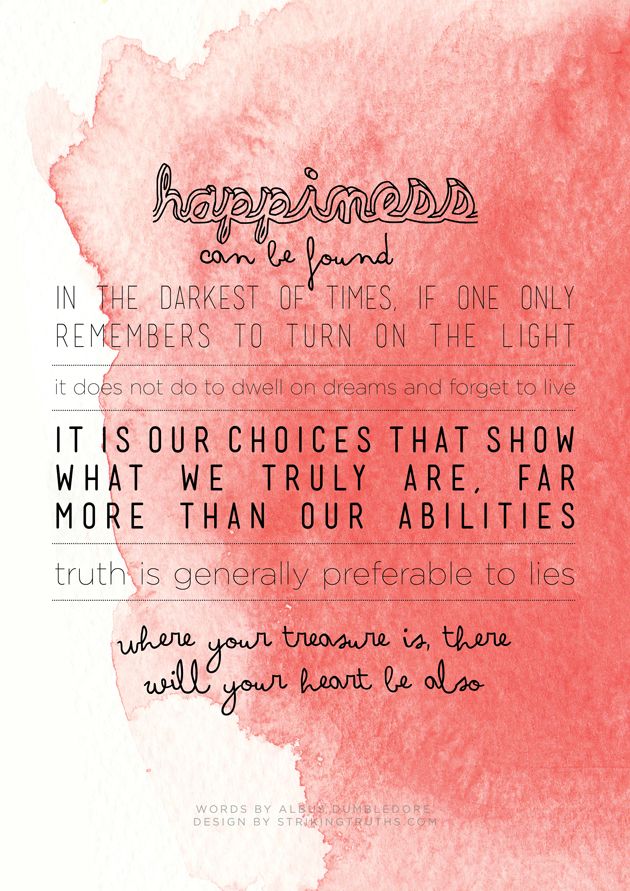 happiness
can be found
IN THE DARKEST OF TIMES, IF ONE ONLY
REMEMBERS TO TURN ON THE LIGHT
it does not do to dwell on dreams and forget to live
IT IS OUR CHOICES THAT SHOW
WHAT WE TRULY ARE, FAR
MORE THAN OUR ABILITIES
truth is generally preferable to lies
where your treasure is, there
will your heart be also
WORDS BY ALBUS DUMBLEDORE
DESIGN BY STRIKINGTRUTHS.COM